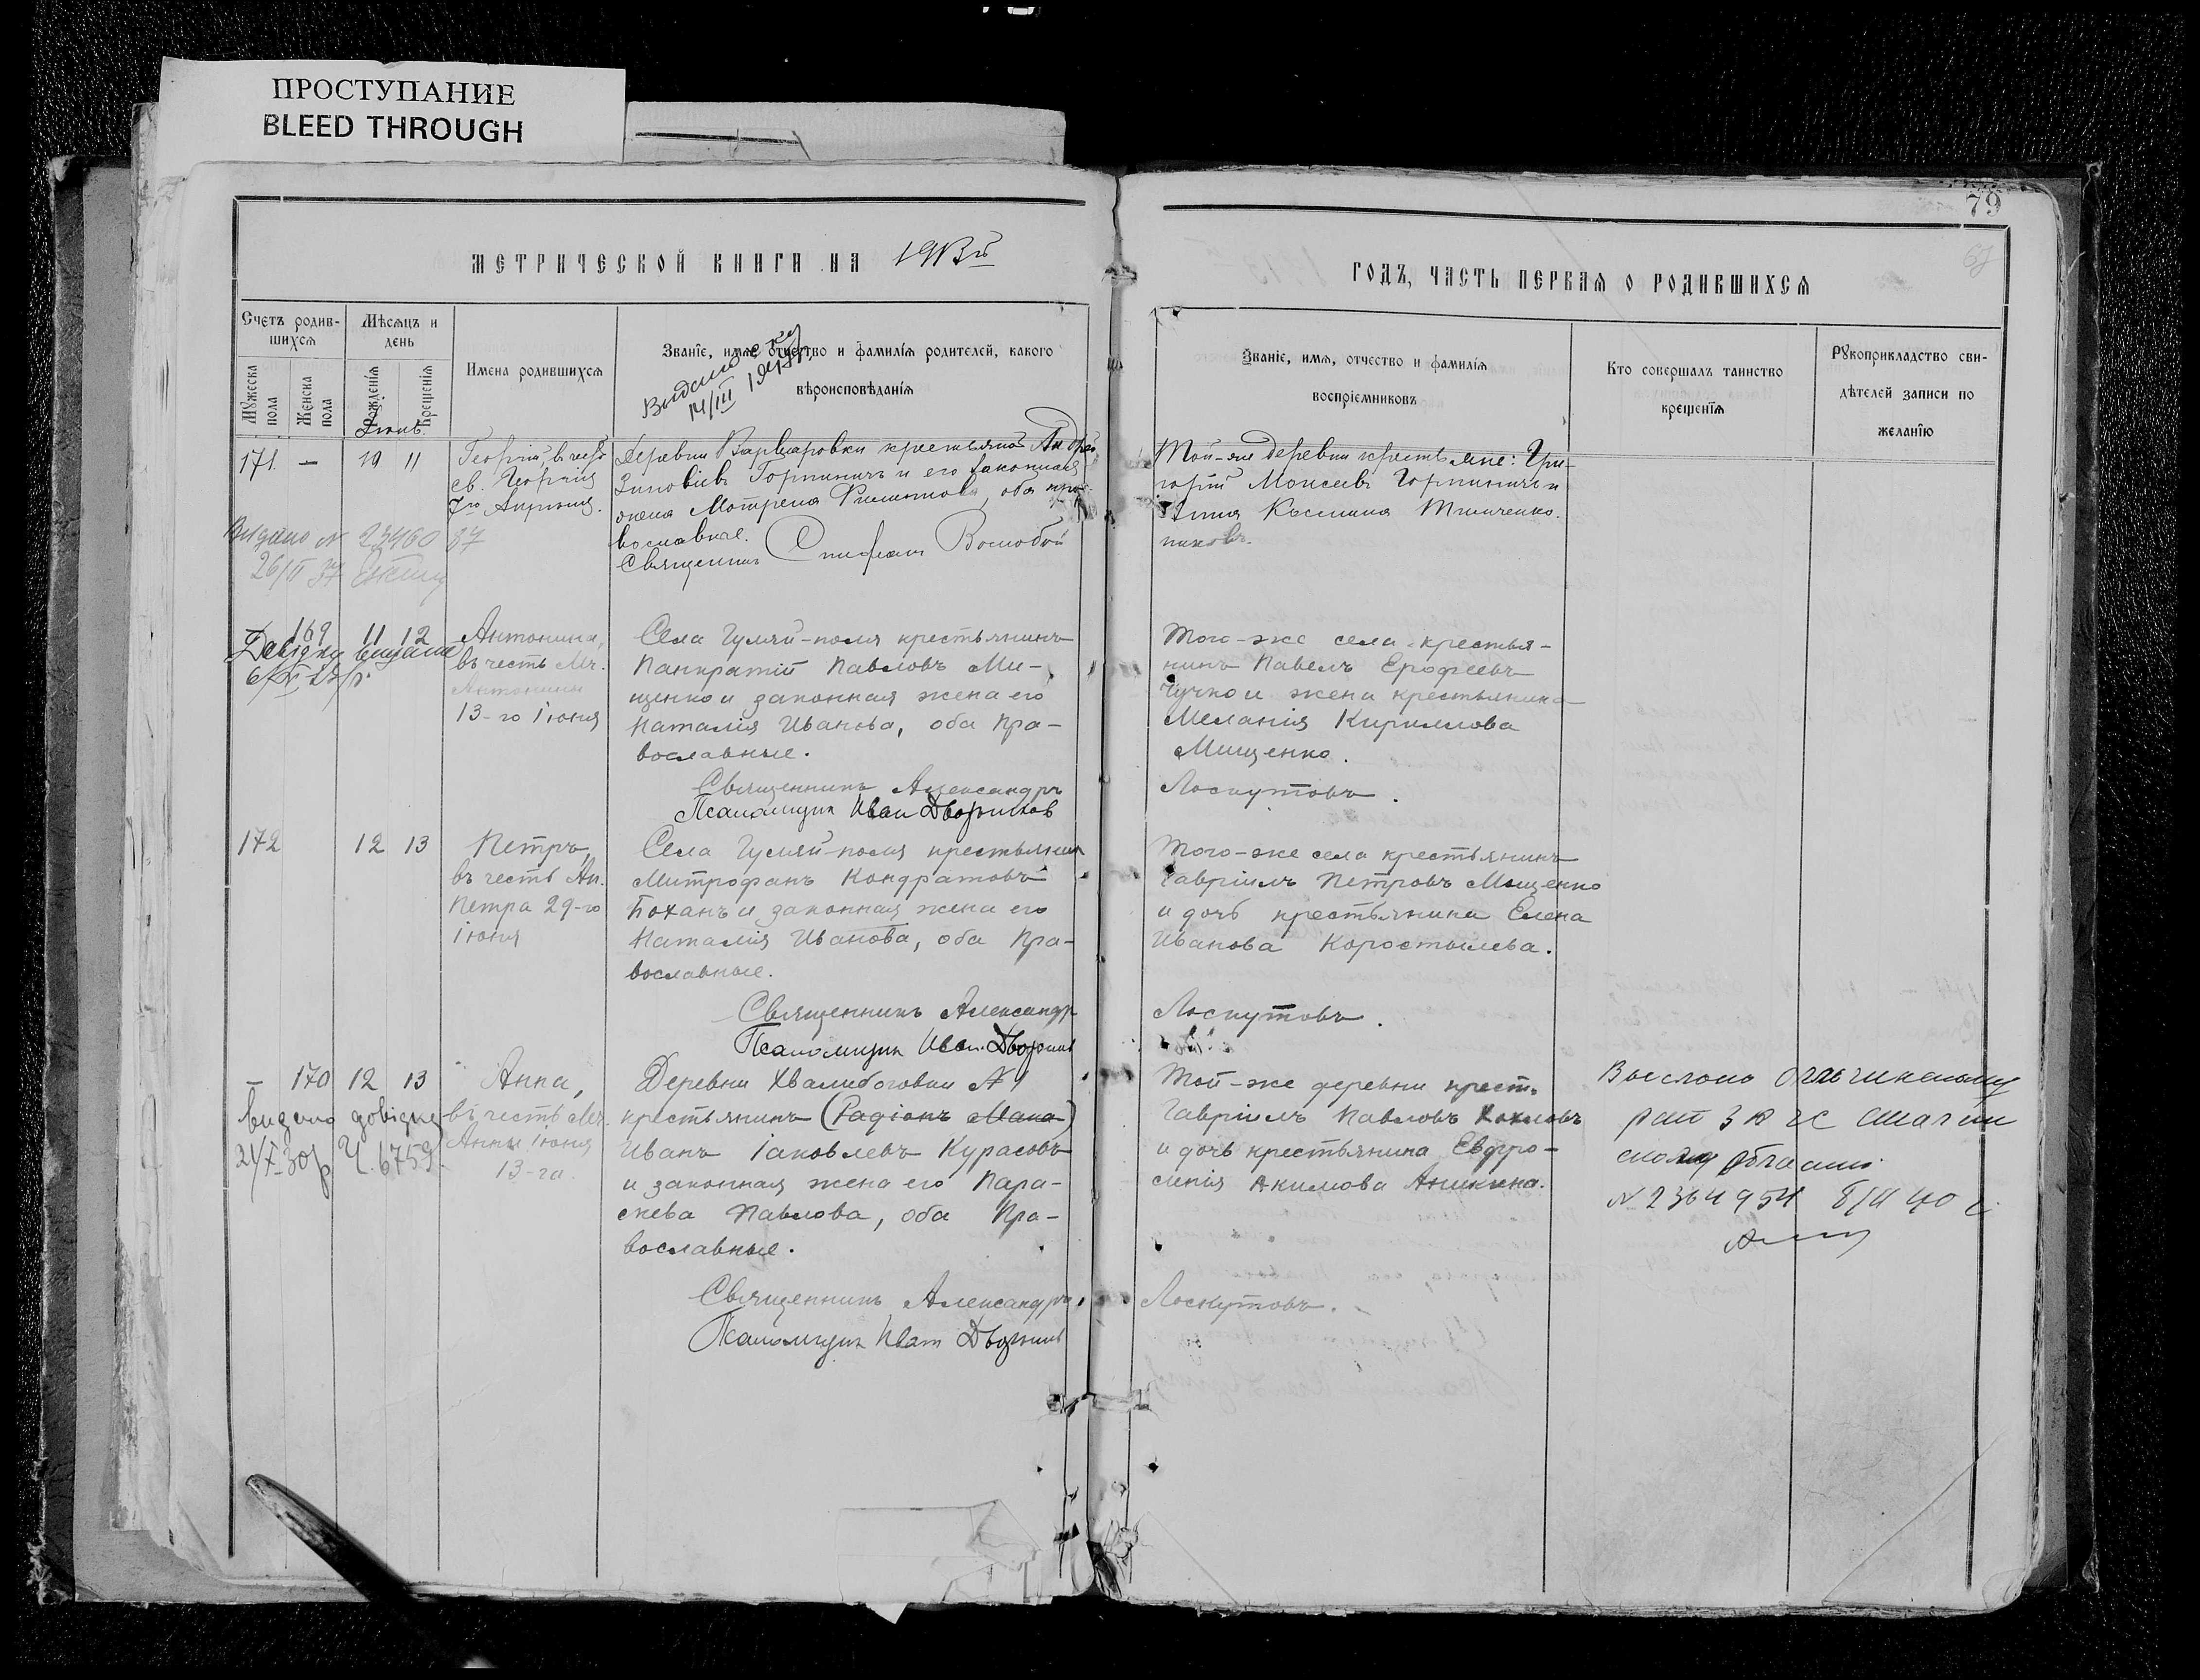 ПРОСТУПАНИЕ
BLEED THROUGH
79
67
МЕТРИЧЕСКОЙ КНИГИ НА 1913й
ГОДЪ, ЧАСТЬ ПЕРВАЯ О РОДИВШИХСЯ
Счетъ родив-
шихся
Мужеска пола
Женска пола
Мѣсяцъ и
день
Рожденія
Крещенія
Имена родившихся
Званіе, имя, отчество и фамилія родителей, какого
вѣроисповѣданія
Званіе, имя, отчество и фамилія
воспріемниковъ
Кто совершалъ таинство
крещенія
Рукоприкладство сви-
дѣтелей записи по
желанію
14/III
171 — 10 11
Георгій, въ честь
св. Георгія
7го Апрѣля.
Деревни Варваровки крестьянинъ Андрей
Зиновіевъ Горпиничъ и его законная
жена Мотрона, оба пра-
вославные.
Священникъ Стефанъ Воловой
Той-же деревни крестьяне: Гри-
горій Моисеевъ Горпиничъ и
Анна Тимченко.
Видано № 23460 37
26/II 37
169 11 12
Довідку видано
Антонина,
въ честь Мч.
Антонины
13-го Іюня
Села Гуляй-поля крестьянинъ
Панкратій Павловъ Ми-
щенко и законная жена его
Наталія Иванова, оба пра-
вославные.
Священникъ Александръ
Псаломщик Иван Дворников
Того-же села крестья-
нинъ Павелъ Ерофеевъ
Чучко и жена крестьянина
Меланія Кириллова
Мищенко.
Лоскутовъ.
172 12 13
Петръ,
въ честь Ап.
Петра 29-го
Іюня
Села Гуляй-поля крестьянин
Митрофанъ Кондратовъ
Боханъ и законная жена его
Наталія Иванова, оба Пра-
вославные.
Священникъ Александр
Псаломщик Иван
Того-же села крестьянинъ
Гавріилъ Петровъ Мищенко
и дочь крестьянина Елена
Иванова Коростылева.
Лоскутовъ.
— 170 12 13
видано довідку
21/X-30р Ч. 6759.
Анна,
въ честь Мч.
Анны Іюня
13-го.
Деревни Хвалибоговки №1
крестьянинъ (Радіонъ Мака)
Иванъ Іаковлевъ Курасовъ
и законная жена его Пара-
скева Павлова, оба Пра-
вославные.
Священникъ Александръ
Псаломщик Иван
Той-же деревни крест.
Гавріилъ Павловъ Хохловъ
и дочь крестьянина Евфро-
синія Акимова Аникина.
Лоскутовъ.
Выслано
рай ЗАГС
области
№ 2364954 8/II 40 г.